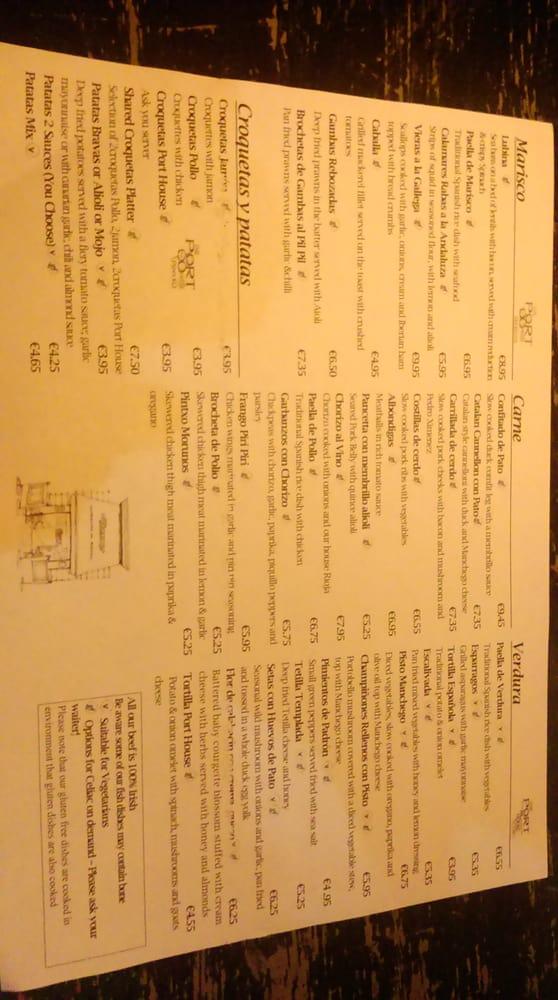 THE PORT HOUSE
Marisco
Lubina €8.95
Sea bass on a bed of lentils with bacon, served with cream reduction
& crispy Spinach
Paella de Marisco €6.95
Traditional Spanish rice dish with seafood
Calamares Rabas a la Andaluza €5.95
Strips of squid in seasoned flour, with lemon and alioli
Vieras a la Gallega €9.95
Scallops cooked with garlic, onions, cream and Iberian ham
topped with bread crumbs
Caballa €4.95
Grilled mackerel fillet served on the toast with crushed
tomatoes
Gambas Rebozadas €6.50
Deep fried prawns in the batter served with Aioli
Brochetas de Gambas al Pil Pil €7.35
Pan fried prawns served with garlic & chilli
Croquetas y patatas
Croquetas Jamón €3.95
Croquettes with jamon
Croquetas Pollo €3.95
Croquettes with chicken
Croquetas Port House €3.95
Ask you server
Shared Croquetas Platter €7.50
Selection of 2croquetas Pollo, 2jamon, 2croquetas Port House
Patatas Bravas or Alioli or Mojo v €3.95
Deep fried potatoes served with a fiery tomato sauce, garlic
mayonnaise or with canarian garlic, chili and almond sauce
Patatas 2 Sauces (You Choose) v €4.25
Patatas Mix v €4.65
THE PORT HOUSE
Carne
Confitado de Pato €9.45
Slow cooked duck confit leg with a membrillo sauce
Catalan Cannellon con Pato €7.35
Catalan style cannelloni with duck and Manchego cheese
Carrillada de cerdo €7.35
Slow cooked pork cheeks with bacon and mushroom and
Pedro Ximenez
Costillas de cerdo €6.55
Slow cooked pork ribs with vegetables
Albondigas €6.95
Meatballs in rich tomato sauce
Pancetta con membrillo alioli €5.25
Seared Pork Belly with quince alioli
Chorizo al Vino €7.95
Chorizo cooked with onions and our house Rioja
Paella de Pollo €6.75
Traditional Spanish rice dish with chicken
Garbanzos con Chorizo €5.75
Chickpeas with chorizo, garlic, paprika, piquillo peppers and
parsley
Frango Piri Piri €5.95
Chicken wings marinated in garlic and piri piri seasoning
Brocheta de Pollo €5.25
Skewered chicken thigh meat marinated in lemon & garlic
Pintxo Morunos €5.25
Skewered chicken thigh meat marinated in paprika &
oregano
Verdura
THE PORT HOUSE
Paella de Verdura v €6.55
Traditional Spanish rice dish with vegetables
Esparragos v €5.35
Grilled asparagus with garlic mayonnaise
Tortilla Española v €3.95
Traditional potato & onion omelet
Escalivada v €5.35
Pan fried mixed vegetables with honey and lemon dressing
Pisto Manchego v €6.75
Diced vegetables, slow cooked with oregano, paprika and
olive oil top with Manchego cheese
Champiñones Rellenos con Pisto v €5.95
Portobello mushroom covered with a diced vegetable stew,
top with Manchego cheese
Pimientos de Padrón v €4.95
Small green peppers served fried with sea salt
Tetilla Templada v €5.25
Deep fried Tetilla cheese and honey
Setas con Huevos de Pato v €6.25
Seasonal wild mushroom with onions and garlic, pan fried
and tossed in a whole duck egg yolk
Flor de €6.25
Battered baby courgette blossom stuffed with cream
cheese with herbs served with honey and almonds
Tortilla Port House €4.55
Potato & onion omelet with spinach, mushrooms and goats
cheese
All our beef is 100% Irish
Be aware some of our fish dishes may contain bone
v Suitable for Vegetarians
Options for Celiac on demand – Please ask your
waiter!
Please note that our gluten free dishes are cooked in
environment that gluten dishes are also cooked